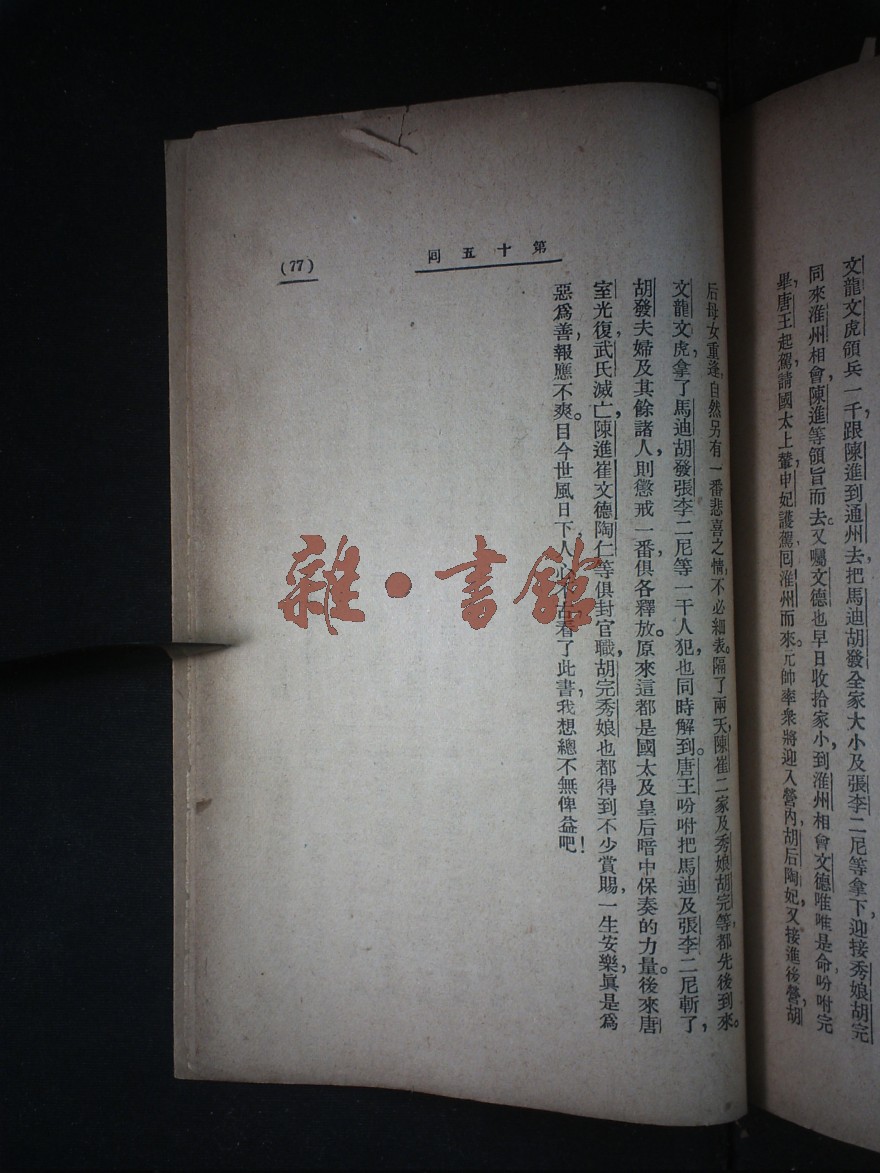 文龍文虎領兵一千跟陳進到通州去把馬迪胡發全家大小及張李二尼等拿下，迎接秀娘胡完
同來淮州相會，陳進等領旨而去。又囑文德也早日收拾家小，到淮州相會文德唯唯是命吩咐完
畢，唐王起駕，請國太上輦，申妃護駕囘淮州而來。元帥率衆將迎入營內，胡后陶妃又接進後營，胡
第十五囘
(77)
后母女重逢，自然另有一番悲喜之情，不必細表。隔了兩天，陳崔二家及秀娘胡完等，都先後到來。
文龍文虎，拿了馬迪胡發張李二尼等一干人犯，也同時解到。唐王吩咐把馬迪及張李二尼斬了，
胡發夫婦及其餘諸人，則懲戒一番，俱各釋放。原來這都是國太及皇后暗中保奏的力量。後來唐
室光復，武氏滅亡，陳進崔文德陶仁等俱封官職，胡完秀娘也都得到不少賞賜，一生安樂，眞是爲
惡爲善，報應不爽。目今世風日下，人心不古，看了此書，我想總不無俾益吧！
雜·書館